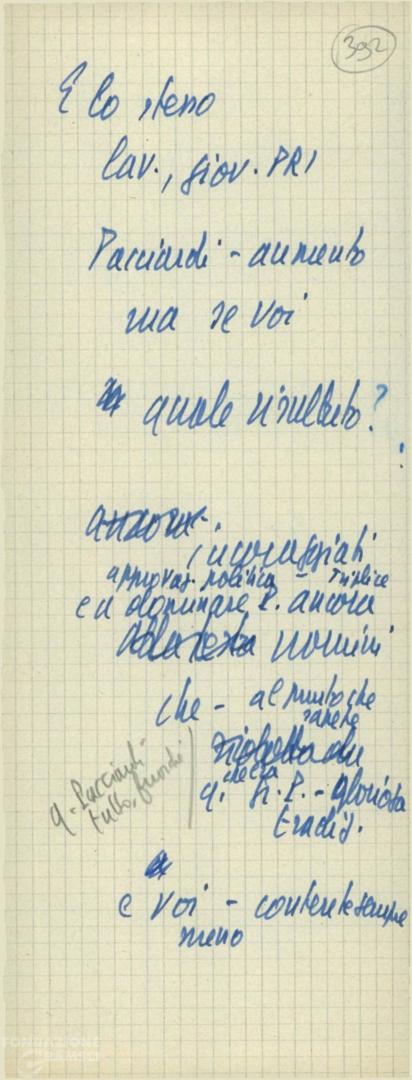 392
E lo stesso
lav., giov. PRI
Pacciardi - aumento
ma se voi
quale risultato?
ancora.
incoraggiati
approvaz. politica - Triplice
e a dominare P. ancora
uomini
che - al punto che
sapete
della
q. P. - gloriosa
tradiz.
q. Pacciardi
tutto, fuorché
e voi - contente sempre
meno
FONDAZIONE
GRAMSCI